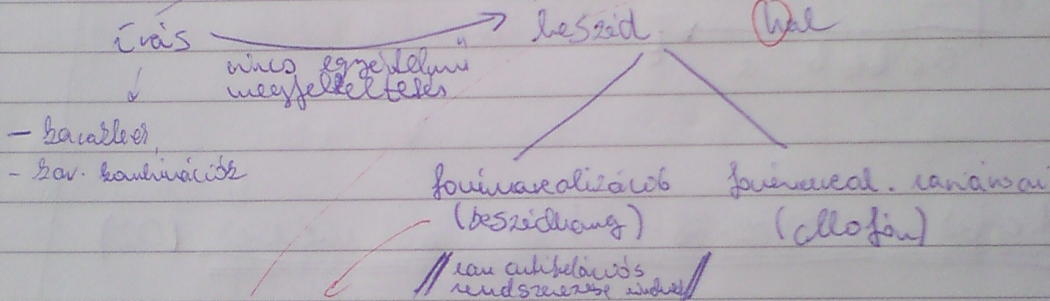 írás beszéd hal
nincs egyértelmű
megfeleltetés
– karakter,
- kar. kombinációk
fonémarealizációk fonémareal. variánsai
(beszédhang) (allofón)
van artikulációs
rendszerezése